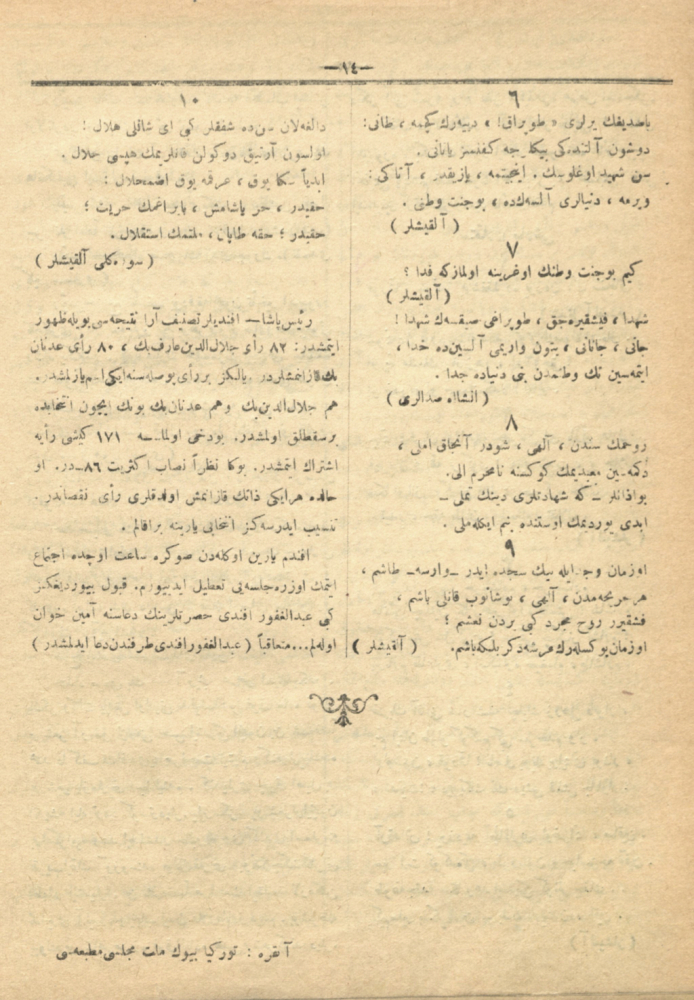 —١٤—
٦
باصديغك يرلرى « طوپراق! » ديیەرك كچمه ، طانى:
دوشون آلتندەكى بيكلرجه كفنسز ياتانى .
سن شهيد اوغلوسك . اينجيتمه ، يازيقدر ، آتاكى :
ويرمه ، دنيالرى آلسەكدە ، بوجنت وطنى .
( آلقيشلر )
٧
كيم بوجنت وطنك اوغرينه اولمازكه فدا ؟
( آلقيشلر )
شهدا ، فيشقيرەجق ، طوپراغى صيقسەك شهدا !
جانى ، جانانى ، بتون واريمى آلسين‌دە خدا ،
ايتمەسين تك وطنمدن بنى دنيادە جدا .
( انشاالله صدالرى )
٨
روحمك سندن ، آلهى ، شودر آنجاق املى ،
دكمەسين معبديمك كوكسنه نامحرم الى.
بو اذانلر ــ كه شهادتلرى دينك تملى ــ
ابدى يوردمك اوستنده بنم ايكلەملى .
٩
اوزمان وجد ايله بيك سجده ايدر ــ وارسه ــ طاشم ،
هر جريحەمدن ، آلهى ، بوشانوب قانلى ياشم ،
فيشقيرر روح مجرد كبى يردن نعشم ؛
اوزمان يوكسلەرك عرشه دكر بلكه باشم. ( آلقيشلر )
١٠
دالغەلان سن‌ده شفقلر كبى اى شانلى هلال !
اولسون آرتيق دوكولن قانلرمك هپسى حلال .
ابدياً سكا يوق ، عرقمه يوق اضمحلال :
حقيدر ، حر ياشامش ، بايراغمك حريت ؛
حقيدر ؛ حقه طاپان ، ملتمك استقلال .
( سوركلى آلقيشلر )
رئيس پاشا — افنديلر تصنيف آرا نتيجەسى بويله ظهور
ايتمشدر: ٨٢ رأى جلال‌الدين عارف بك ، ٨٠ رأى عدنان
بك قازانمشلردر . يالكز بر رأى بوصلەسنه ايكى اسم يازلمشدر.
هم جلال‌الدين بك وهم عدنان بك بونك ايچون انتخابده
برسقطلق اولمشدر. بودخى اولماسه ١٧١ كيشى رأيه
اشتراك ايتمشدر. بوكا نظراً نصاب اكثريت ٨٦ــدر. او
حالده هرايكى ذاتك قازانمش اولدقلرى رأى نقصاندر .
تنسيب ايدرسەكز انتخابى يارينه براقالم .
افندم يارين اوكلەدن صوكره ساعت اوچده اجتماع
ايتمك اوزره جلسەيى تعطيل ايدييورم. قبول بيورديغكز
كبى عبدالغفور افندى حضرتلرينك دعاسنه آمين خوان
اولەلم...متعاقباً ( عبدالغفور افندى طرفندن دعا ايدلمشدر )
آنقره : توركيا بيوك ملت مجلسى مطبعەسى